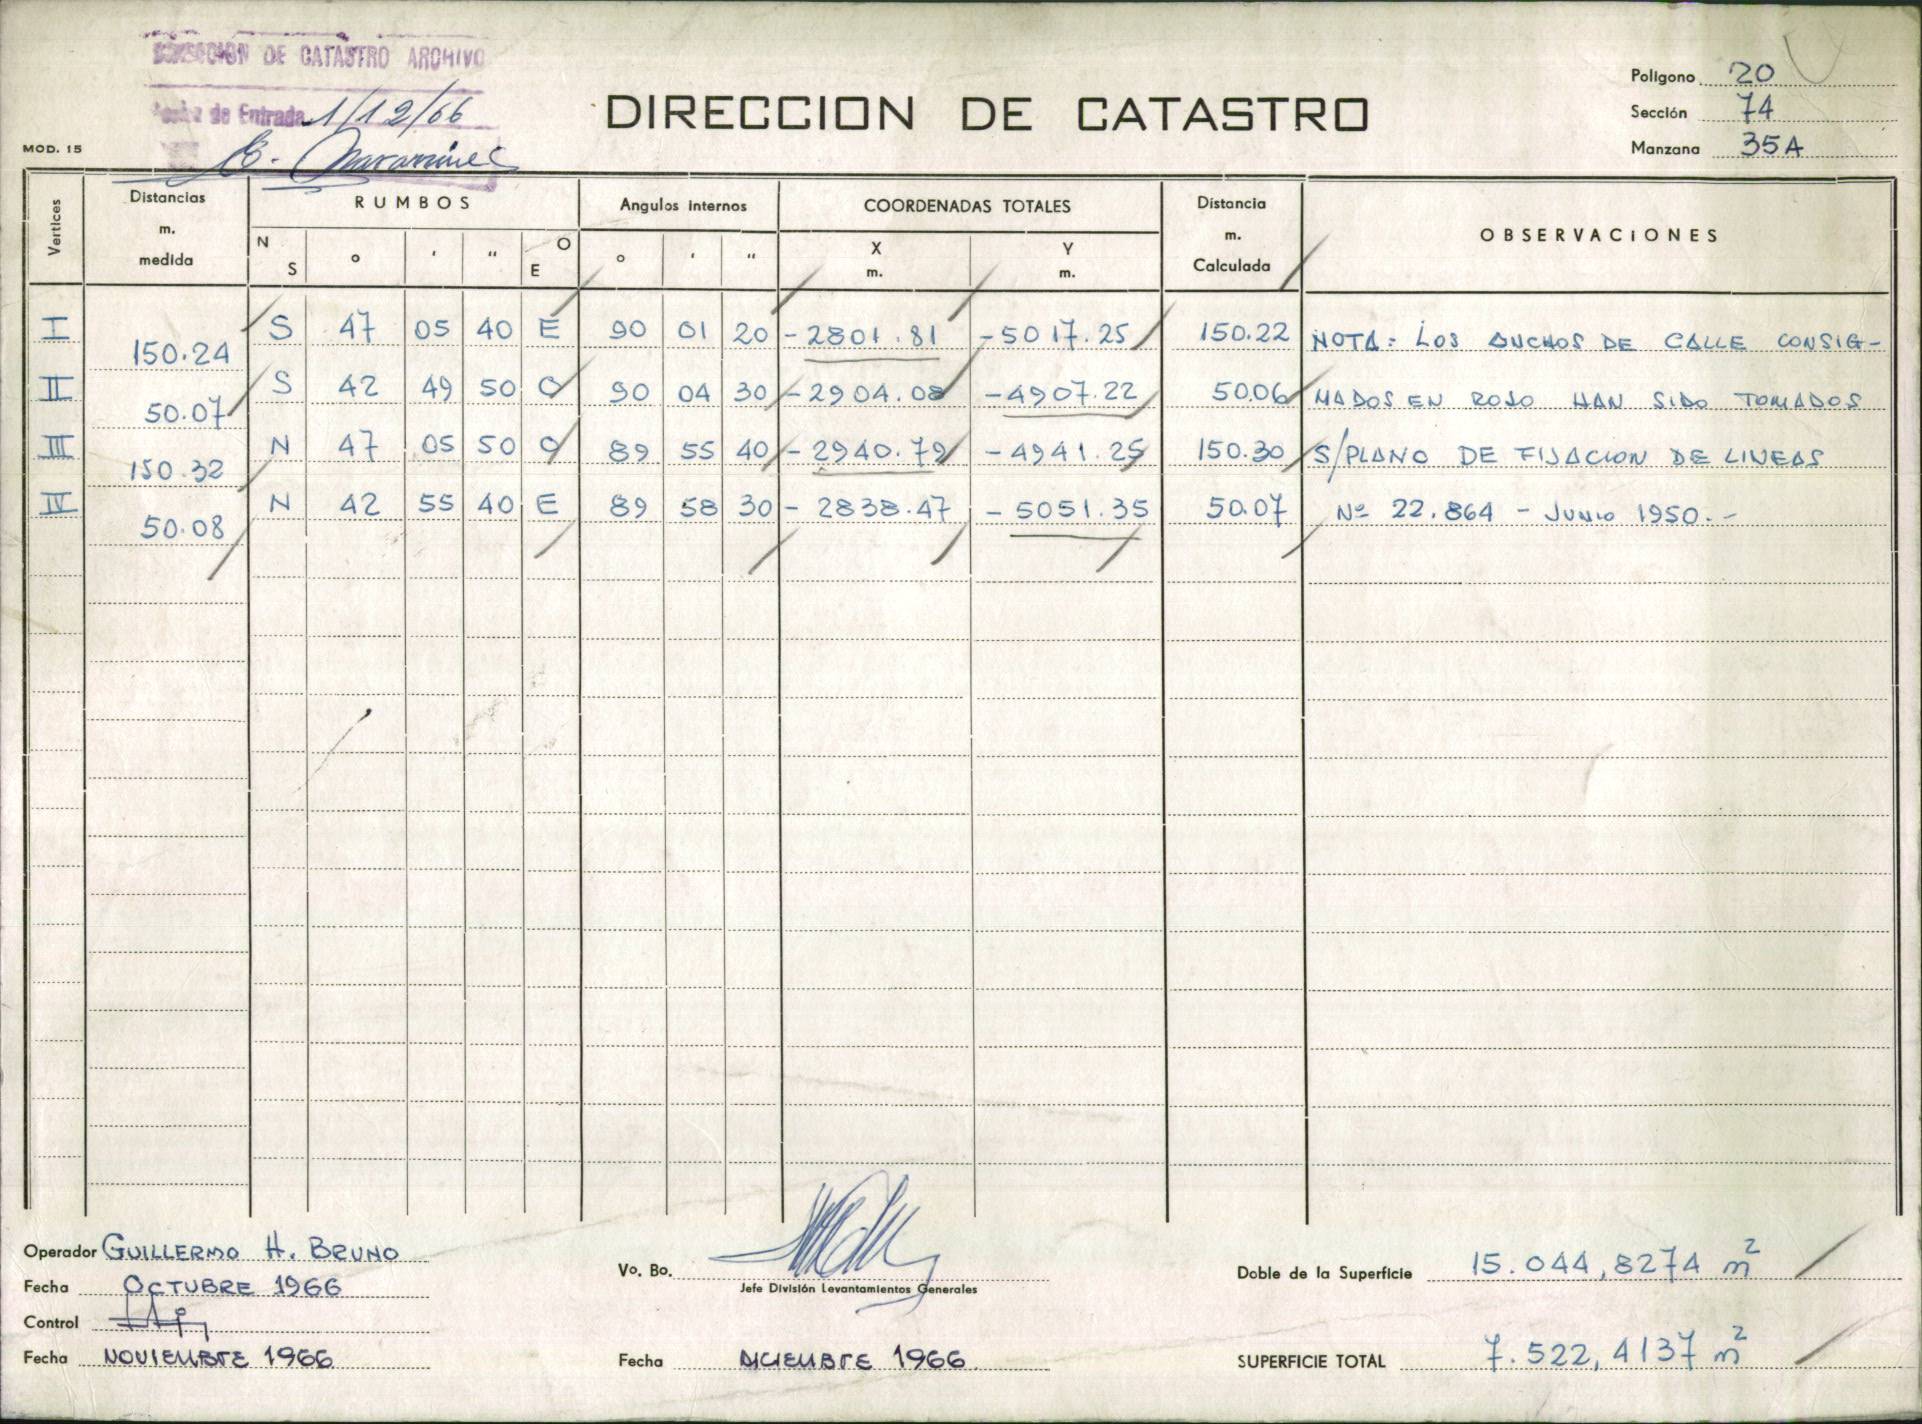 DIRECCION DE CATASTRO ARCHIVO
Fecha de Entrada 1/12/66
MOD. 15
DIRECCION DE CATASTRO
Poligono 20
Sección 74
Manzana 35A
Vertices
Distancias m. medida
RUMBOS
N S ° ' " O E
Angulos internos
° ' "
COORDENADAS TOTALES
X m. Y m.
Distancia m. Calculada
OBSERVACIONES
I 150.24 S 47 05 40 E 90 01 20 -2801.81 -5017.25 150.22 NOTA: LOS ANCHOS DE CALLE CONSIG-
II 50.07 S 42 49 50 O 90 04 30 -2904.08 -4907.22 50.06 NADOS EN ROJO HAN SIDO TOMADOS
III 150.32 N 47 05 50 O 89 55 40 -2940.79 -4941.25 150.30 S/PLANO DE FIJACION DE LINEAS
IV 50.08 N 42 55 40 E 89 58 30 -2838.47 -5051.35 50.07 Nº 22.864 - JUNIO 1950.-
Operador GUILLERMO H. BRUNO
Fecha OCTUBRE 1966
Control
Fecha NOVIEMBRE 1966
Vo. Bo.
Jefe División Levantamientos Generales
Fecha DICIEMBRE 1966
Doble de la Superficie 15.044,8274 m²
SUPERFICIE TOTAL 7.522,4137 m²